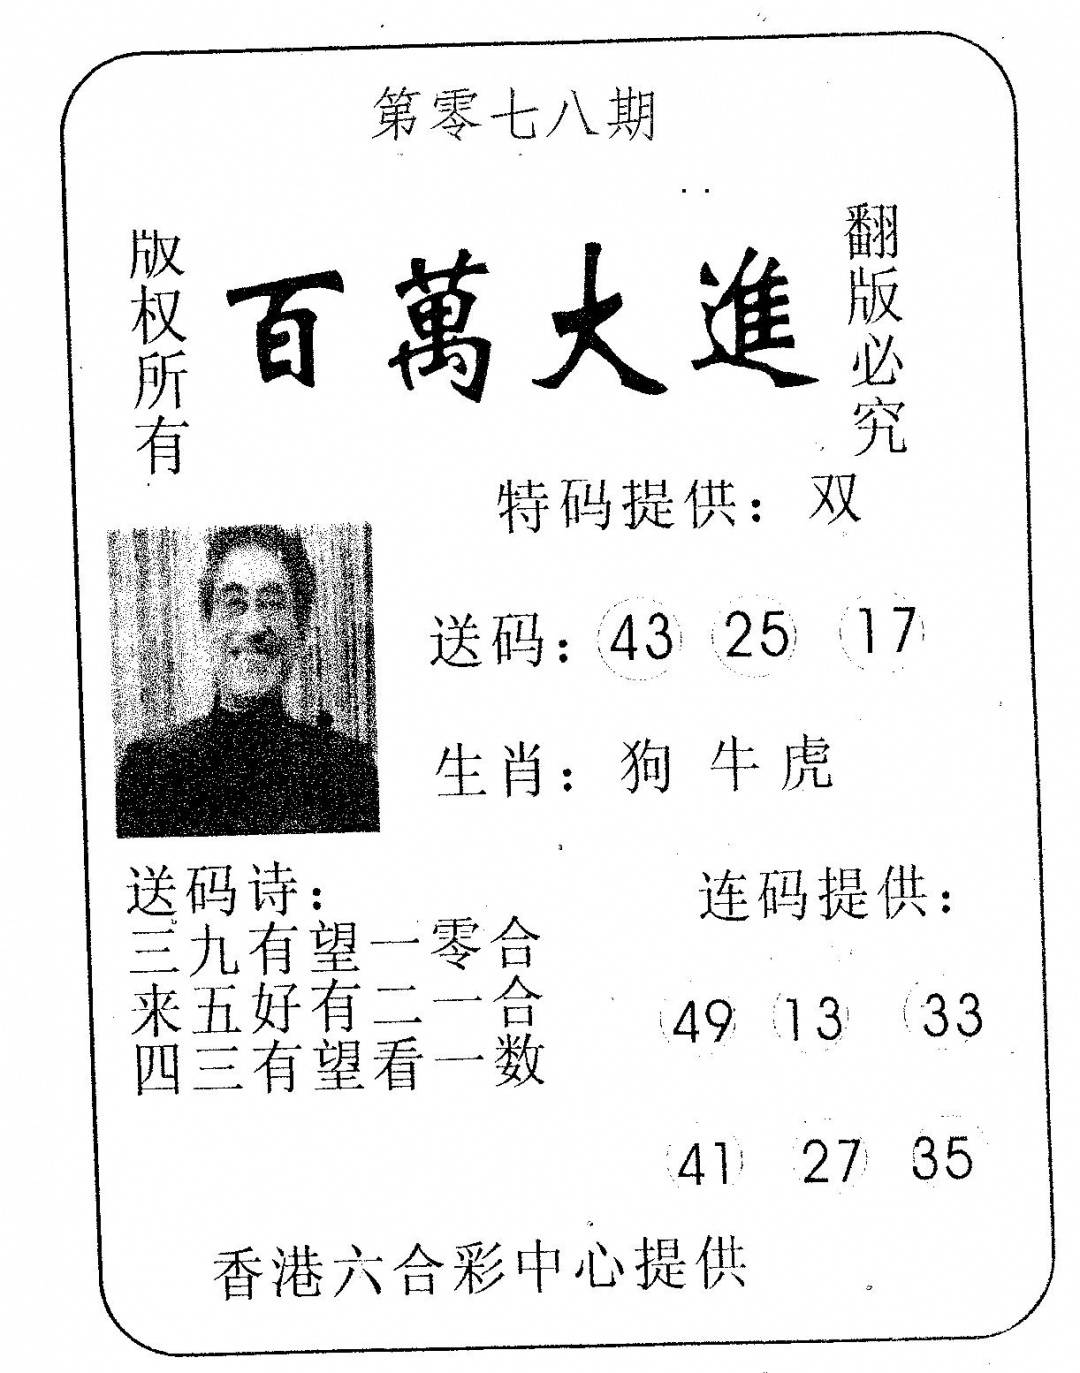 第零七八期
版权所有
百萬大進
翻版必究
特码提供：双
送码：43 25 17
生肖：狗 牛 虎
送码诗：
三九有望一零合
来五好有二一合
四三有望看一数
连码提供：
49 13 33
41 27 35
香港六合彩中心提供